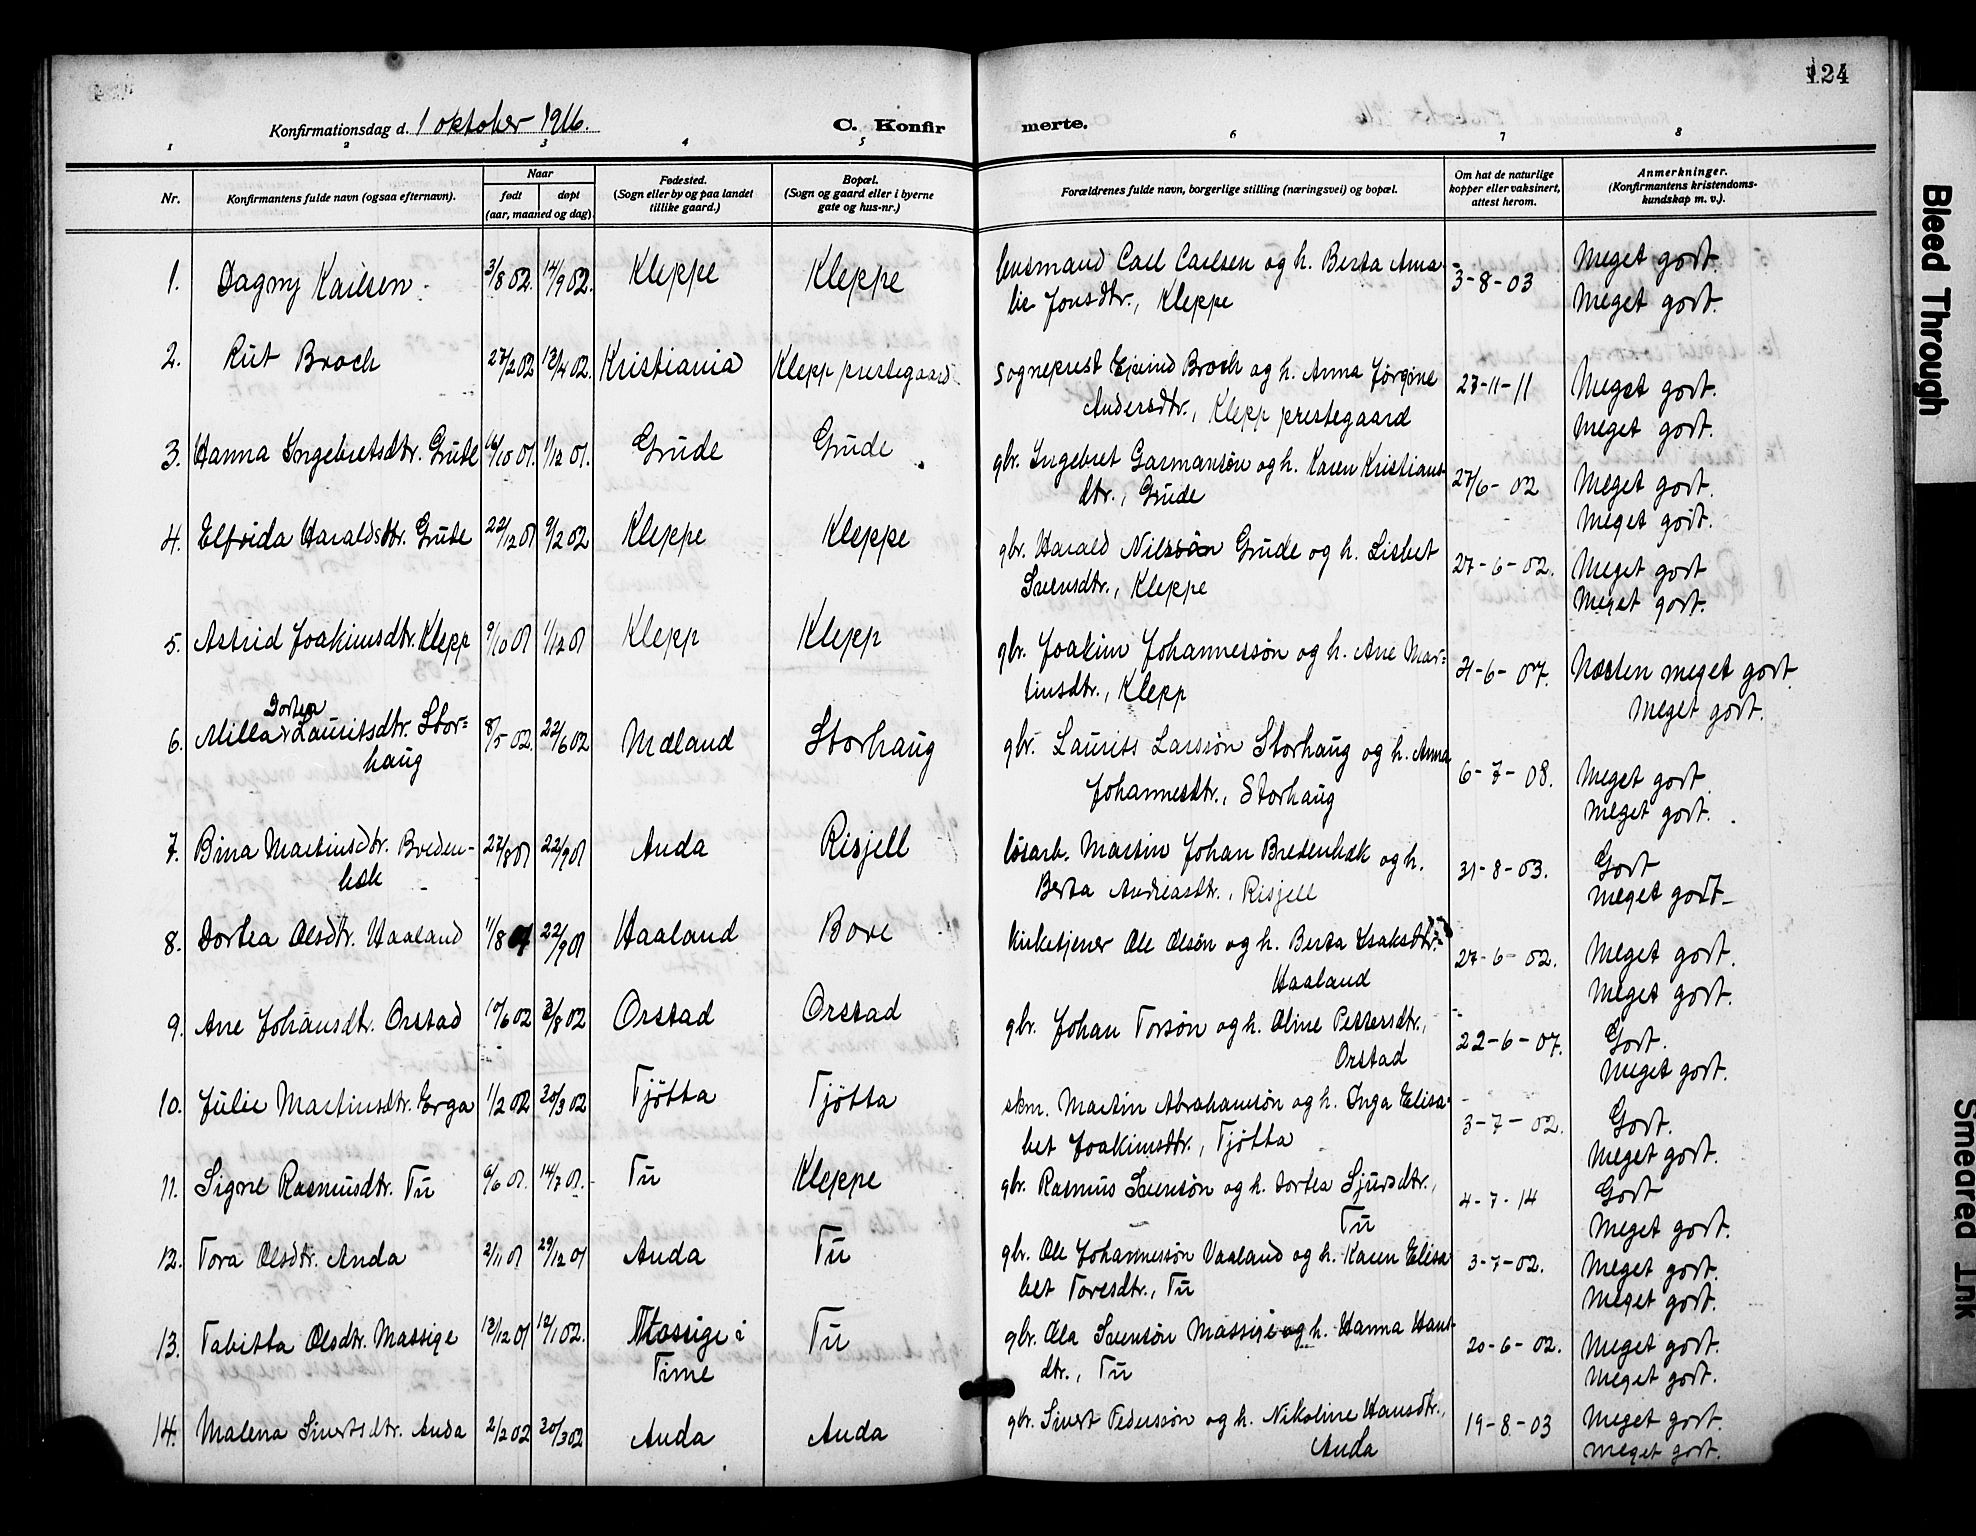 124
Konfirmationsdag d. 1 oktober 1916. C. Konfir merte.
1 2 3 4 5 6 7 8
Nr. Konfirmantens fulde navn (ogsaa efternavn). Naar født døpt (aar, maaned og dag). Fødested. (Sogn eller by og paa landet tillike gaard.) Bopæl. (Sogn og gaard eller i byerne gate og hus-nr.) Forældrenes fulde navn, borgerlige stilling (næringsvei) og bopæl. Om hat de naturlige kopper eller vaksinert, attest herom. Anmerkninger. (Konfirmantens kristendoms-kundskap m. v.).
1. Dagny Karlsen 3/8 02. 14/9 02. Kleppe Kleppe lensmand Carl Carlsen og h. Berta Ama- 3-8-03 Meget godt.
lie Jonsdtr., Kleppe Meget godt.
2. Rut Broch 27/2 02 13/4 02 Kristiania Klepp prestegaard. Sogneprest Ejvind Broch og h. Anna Jørgine 27-11-11 Meget godt.
Andersdtr., Klepp prestegaard Meget godt.
3. Hanna Ingebretsdtr. Grude 16/10 01. 1/12 01. Grude Grude gbr. Ingebret Garmansøn og h. Karen Kristians- 27/6-02 Meget godt.
dtr., Grude Meget godt.
4. Elfrida Haraldsdtr. Grude 22/12 01 9/2 02 Kleppe Kleppe gbr. Harald Nilssøn Grude og h. Lisbet 27-6-02. Meget godt
Svensdtr., Kleppe Meget godt.
5. Astrid Joakimsdtr. Klepp 9/10 01 1/12 01 Klepp Klepp gbr. Joakim Johannessøn og h. Ane Mar= 21-6-07. Næsten meget godt.
tinsdtr., Klepp Meget godt.
Dortea
6. Milla Lauritsdtr. Stor= 8/5 02. 22/6 02 Mæland Storhaug gbr. Laurits Larssøn Storhaug og h. Anna 6-7-08. Meget godt.
haug Johannesdtr., Storhaug Meget godt.
7. Bina Martinsdtr. Breden- 27/8 01 22/9 01 Anda Risjell løsarb. Martin Johan Bredenbæk og h. 31-8-03. Godt
bæk Berta Andreasdtr., Risjell Meget godt
8. Dortea Olsdtr. Haaland 11/8 01 22/9 01 Haaland Bore Kirketjener Ole Olsøn og h. Berta Isaksdtr. 27-6-02. Meget godt.
Haaland Meget godt.
9. Ane Johansdtr. Orstad 10/6 02 3/8 02 Orstad Orstad gbr. Johan Torsøn og h. Oline Pettersdtr., 22-6-07. Godt.
Orstad Meget godt.
10. Julie Martinsdtr. Erga 1/2 02 30/3 02 Tjøtta Tjøtta skm. Martin Abrahamsøn og h. Inga Elisa- 3-7-02. Godt.
bet Joakimsdtr., Tjøtta Meget godt.
11. Signe Rasmusdtr. Tu 6/6 01. 14/7 01. Tu Kleppe gbr. Rasmus Svensøn og h. Dortea Sjursdtr., 4-7-14 Godt
Tu Meget godt.
12. Tora Olsdtr. Anda 2/11 01 29/12 01 Anda Tu gbr. Ole Johannessøn Vaaland og h. Karen Elisa 3-7-02. Meget godt.
bet Toresdtr., Tu Meget godt.
13. Tabitta Olsdtr. Massige 12/12 01 12/1 02. Massige i Tu gbr. Ola Svensøn Massige og h. Hanna Hans- 20-6-02. Meget godt.
Time dtr., Tu Meget godt.
14. Malena Sivertsdtr. Anda 2/2 02 30/3 02 Anda Anda gbr. Sivert Pederssøn og h. Nikoline Hansdtr., 19-8-03 Meget godt.
Anda Meget godt.
Bleed Through
Smeared Ink